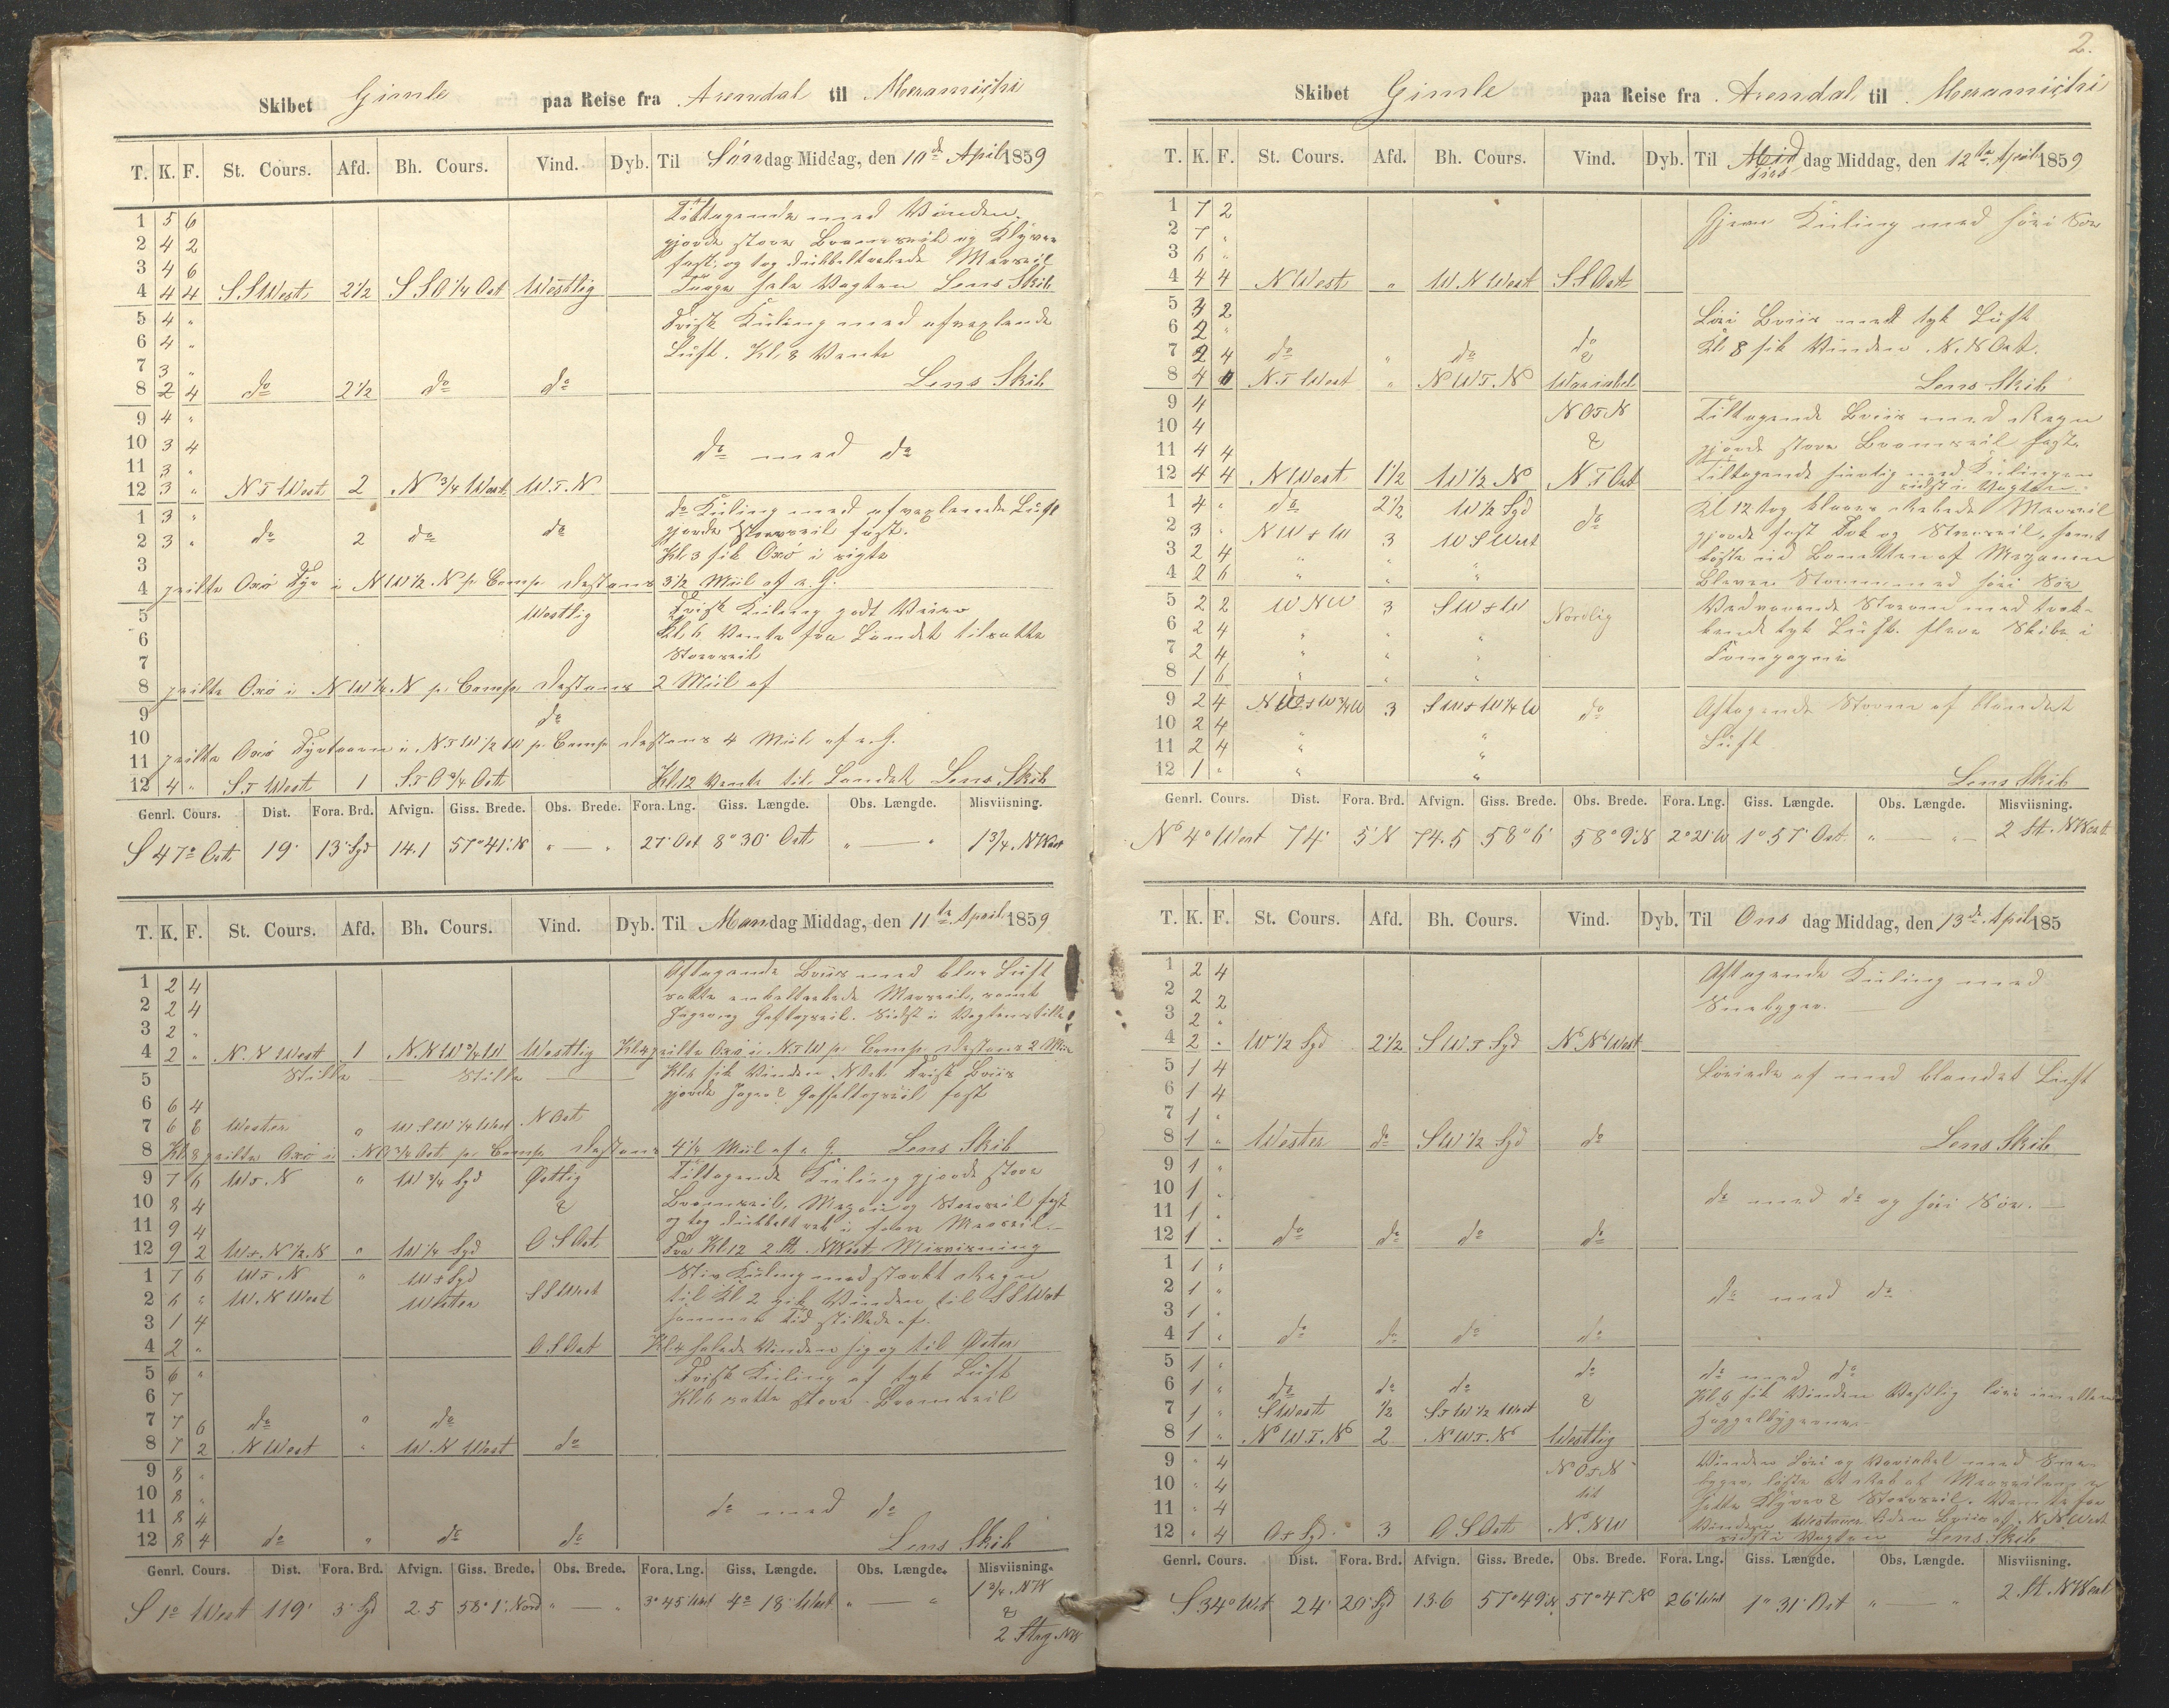 2.
Skibet Gimle paa Reise fra Arendal til Meramichi
T. K. F. St. Cours. Afd. Bh. Cours. Vind. Dyb. Til Søndag Middag, den 10de April 1859
1 5 6 Tiltagende med Vinden.
2 4 2 gjorde store Bramseil og Klyver
3 4 6 fast, og tog dubbeltrebede Merseil
4 4 4 S.S.West 2 1/2 S S O 1/4 Ost Westlig Lens Skib
5 4 " Frisk Kuling med afvexlende
6 4 " Luft. Kl. 8 Vente
7 3 " Lens Skib
8 2 4 do 2 1/2 do do
9 4 "
10 3 4 do med do
11 3 "
12 3 " N T West 2 N 3/4 West W. T. N
1 3 " do Kuling med afvexlende Luft
2 3 " do 2 do do gjorde Storseil fast.
3 Kl. 3 fik Oxö i sigte
4 peilte Oxö Fyr i N W 1/2 N p. Comp. Destans 3 1/2 Miil af a. G.
5 Westlig Frisk Kuling godt Veir
6 Kl. 6 Vente fra Landet tilsatte
7 Storseil
8 peilte Oxö i N W 1/4 N p. Comp. Destans 2 Miil af
9 do
10
11 peilte Oxö Fyrtaarn i N T W 1/2 W p. Comp. Destans 4 Miil af a. G.
12 4 " S T West 1 S T O 3/4 Ost Kl. 12 Vente til Landet Lens Skib
Genrl. Cours. Dist. Fora. Brd. Afvign. Giss. Brede. Obs. Brede. Fora. Lng. Giss. Længde. Obs. Længde. Misviisning.
S 47° Ost 19' 13' Syd 14.1 57° 41' N " — " 27' Ost 8° 30' Ost " — " 1 3/4 N West
T. K. F. St. Cours. Afd. Bh. Cours. Vind. Dyb. Til Mandag Middag, den 11te April 1859
1 2 4 Aftagende Briis med klar Luft
2 2 4 satte enkeltrebede Merseil, samt
3 2 " Jager og Gaftopseil. Sidst i Vagten stille
4 2 " N. N West 1 N. N W 3/4 W Westlig Kl. 4 peilte Oxö i N. T W p. Comp. Destans 2 Miil
5 Stille — Stille — Kl. 6 fik Vinden N Ost. Frisk Briis
6 6 4 gjorde Jager & Gaffeltopseil fast
7 6 6 Wester " W S W 1/4 West N Ost
8 Kl. 8 peilte Oxö i N O 3/4 Ost p. Comp. Destans 4 1/4 Miil af a. G. Lens Skib
9 7 6 W T. N " W 3/4 Syd Østlig Tiltagende Kuling gjorde store
10 8 4 & Bramseil, Mezan og Storseil fast
11 9 4 og tog dubbelt reb i store Merseil.
12 9 2 W T. N 1/2 N " W 1/4 Syd O S Ost Fra Kl. 12 2 St. N West Misvisning
1 7 6 W T. N " W T Syd Stiv Kuling med stærkt Regn
2 6 " W. N West Wester S S West til Kl. 2 gik Vinden til S S West
3 1 4 samme tid stillede af.
4 2 " O S Ost Kl. 4 halede Vinden sig og til Øster
5 6 " Frisk Kuling af tyk Luft
6 7 Kl. 6 satte store Bramseil
7 7 6 do " do
8 7 2 N West " W. N West do
9 8 "
10 8 " do med do
11 8 4
12 8 4 do " do do Lens Skib
Genrl. Cours. Dist. Fora. Brd. Afvign. Giss. Brede. Obs. Brede. Fora. Lng. Giss. Længde. Obs. Længde. Misviisning.
S 1° West 119' 3' Syd 2.5 58° 1' Nord " — " 3° 45' West 4° 18' West " — " 1 3/4 NW
&
2 Streg NW
Skibet Gimle paa Reise fra Arendal til Meramichi
T. K. F. St. Cours. Afd. Bh. Cours. Vind. Dyb. Til Tirsdag Middag, den 12te April 1859
1 7 2 Gjevn Kuling med höi Söe
2 7 "
3 6 "
4 4 4 N West " W N West S S Ost
5 3 2 Löi Briis med tyk Luft
6 2 " do Kl. 8 fik Vinden N. N Ost.
7 2 4 do " do &
8 4 N. T West " N W T. N Wariabel Lens Skib
9 4 N O T N Tiltagende Briis med Regn
10 4 & gjorde store Bramseil fast.
11 4 4 Tiltagende hurtig med Kulingen
12 4 4 N West 1 1/2 W 1/2 N N T Ost sidst i Vagten.
1 4 " do 2 1/2 W 1/2 Syd do Kl. 12 tog klaare Rebede Merseil
2 3 " N W T W 3 W S West gjorde fast Fok og Storseil, samt
3 2 4 " " "
4 2 6 " " " Storm med höi Söe
5 2 2 W N W 3 S W T W Nordlig Vedvarende Storm med
6 2 4 " " " tyk Luft. flere Skibe i
7 2 4 " " " Compagni
8 1 6 " " "
9 2 4 N W T W 3/4 W 3 S W T W 1/4 W do Aftagende Storm af blandet
10 2 4 " " Luft
11 2 4 " "
12 1 " " " Lens Skib
Genrl. Cours. Dist. Fora. Brd. Afvign. Giss. Brede. Obs. Brede. Fora. Lng. Giss. Længde. Obs. Længde. Misviisning.
N 4° West 74' 5' N 74.5 58° 6' 58° 9' N 2° 21' W 1° 57' Ost " — " 2 St. N West
T. K. F. St. Cours. Afd. Bh. Cours. Vind. Dyb. Til Onsdag Middag, den 13de April 185
1 2 4 Aftagende Kuling med
2 2 2 Snebyger.
3 2 "
4 2 " W 1/2 Syd 2 1/2 S W T Syd N N West
5 1 4 Löiede af med blandet Luft
6 1 4
7 1 "
8 1 " Wester do S W 1/2 Syd do Lens Skib
9 1 "
10 1 " do med do og höi Söe.
11 1 "
12 1 " do do do do
1 1 "
2 1 " do med do
3 1 "
4 1 " do do do do
5 1 " do do med do
6 1 " do do do Kl. 6 fik Vinden Vestlig löi imellem
7 1 " S West 1/2 S T W 1/2 West & Haggelbygerne.
8 1 " N W T. N 2 N W T. N Westlig
9 " 4 N O T N Vinden Löi og Variabel med Sne-
10 " 4 til
11 " 4 Klyver & Storseil. Vente for
12 " 4 O T Syd. 3 O S Ost N. N W sidst i Vagten Lens Skib
Genrl. Cours. Dist. Fora. Brd. Afvign. Giss. Brede. Obs. Brede. Fora. Lng. Giss. Længde. Obs. Længde. Misviisning.
S 34° West 24' 20' Syd 13.6 57° 49' N 57° 47' N 26' West 1° 31' Ost " — " 2 St. N West